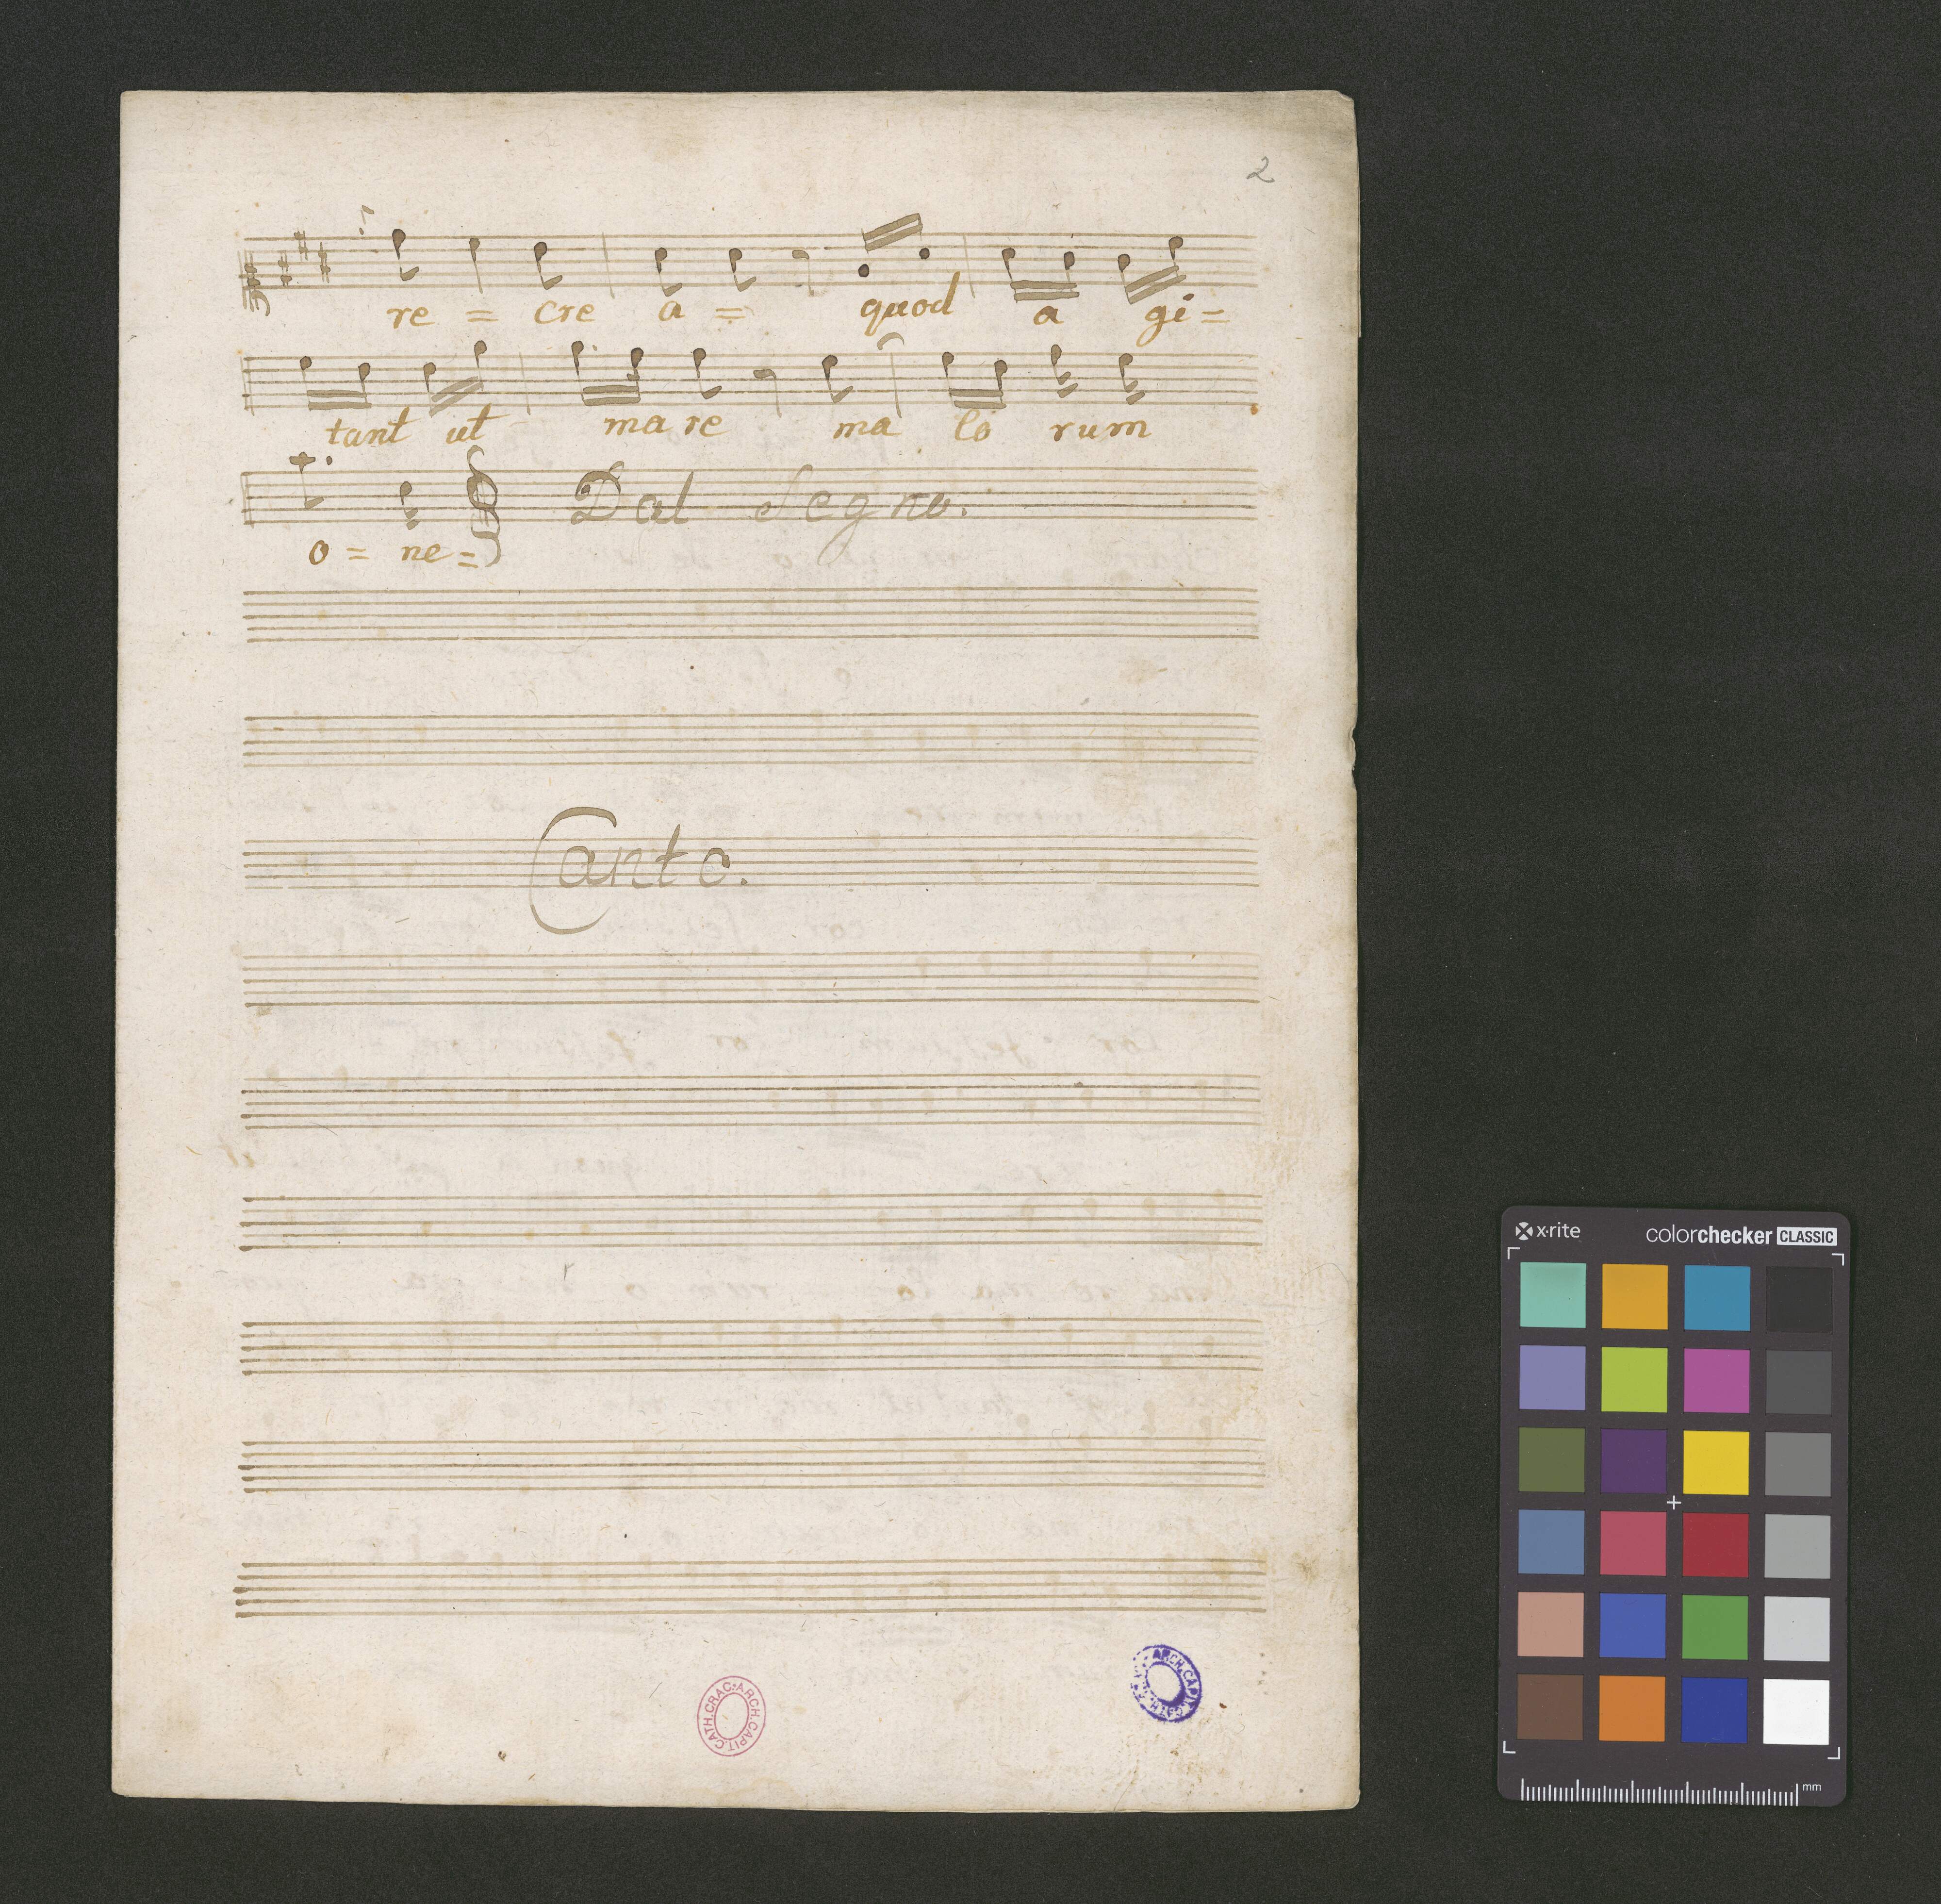 2
re = cre a = quod a gi =
tant ut mare ma lo rum
Dal Segno.
o = ne =
Canto.
ARCH.CAPIT.CATH.CRAC.
ARCH.CAPIT.CATH.
x·rite colorchecker CLASSIC
mm